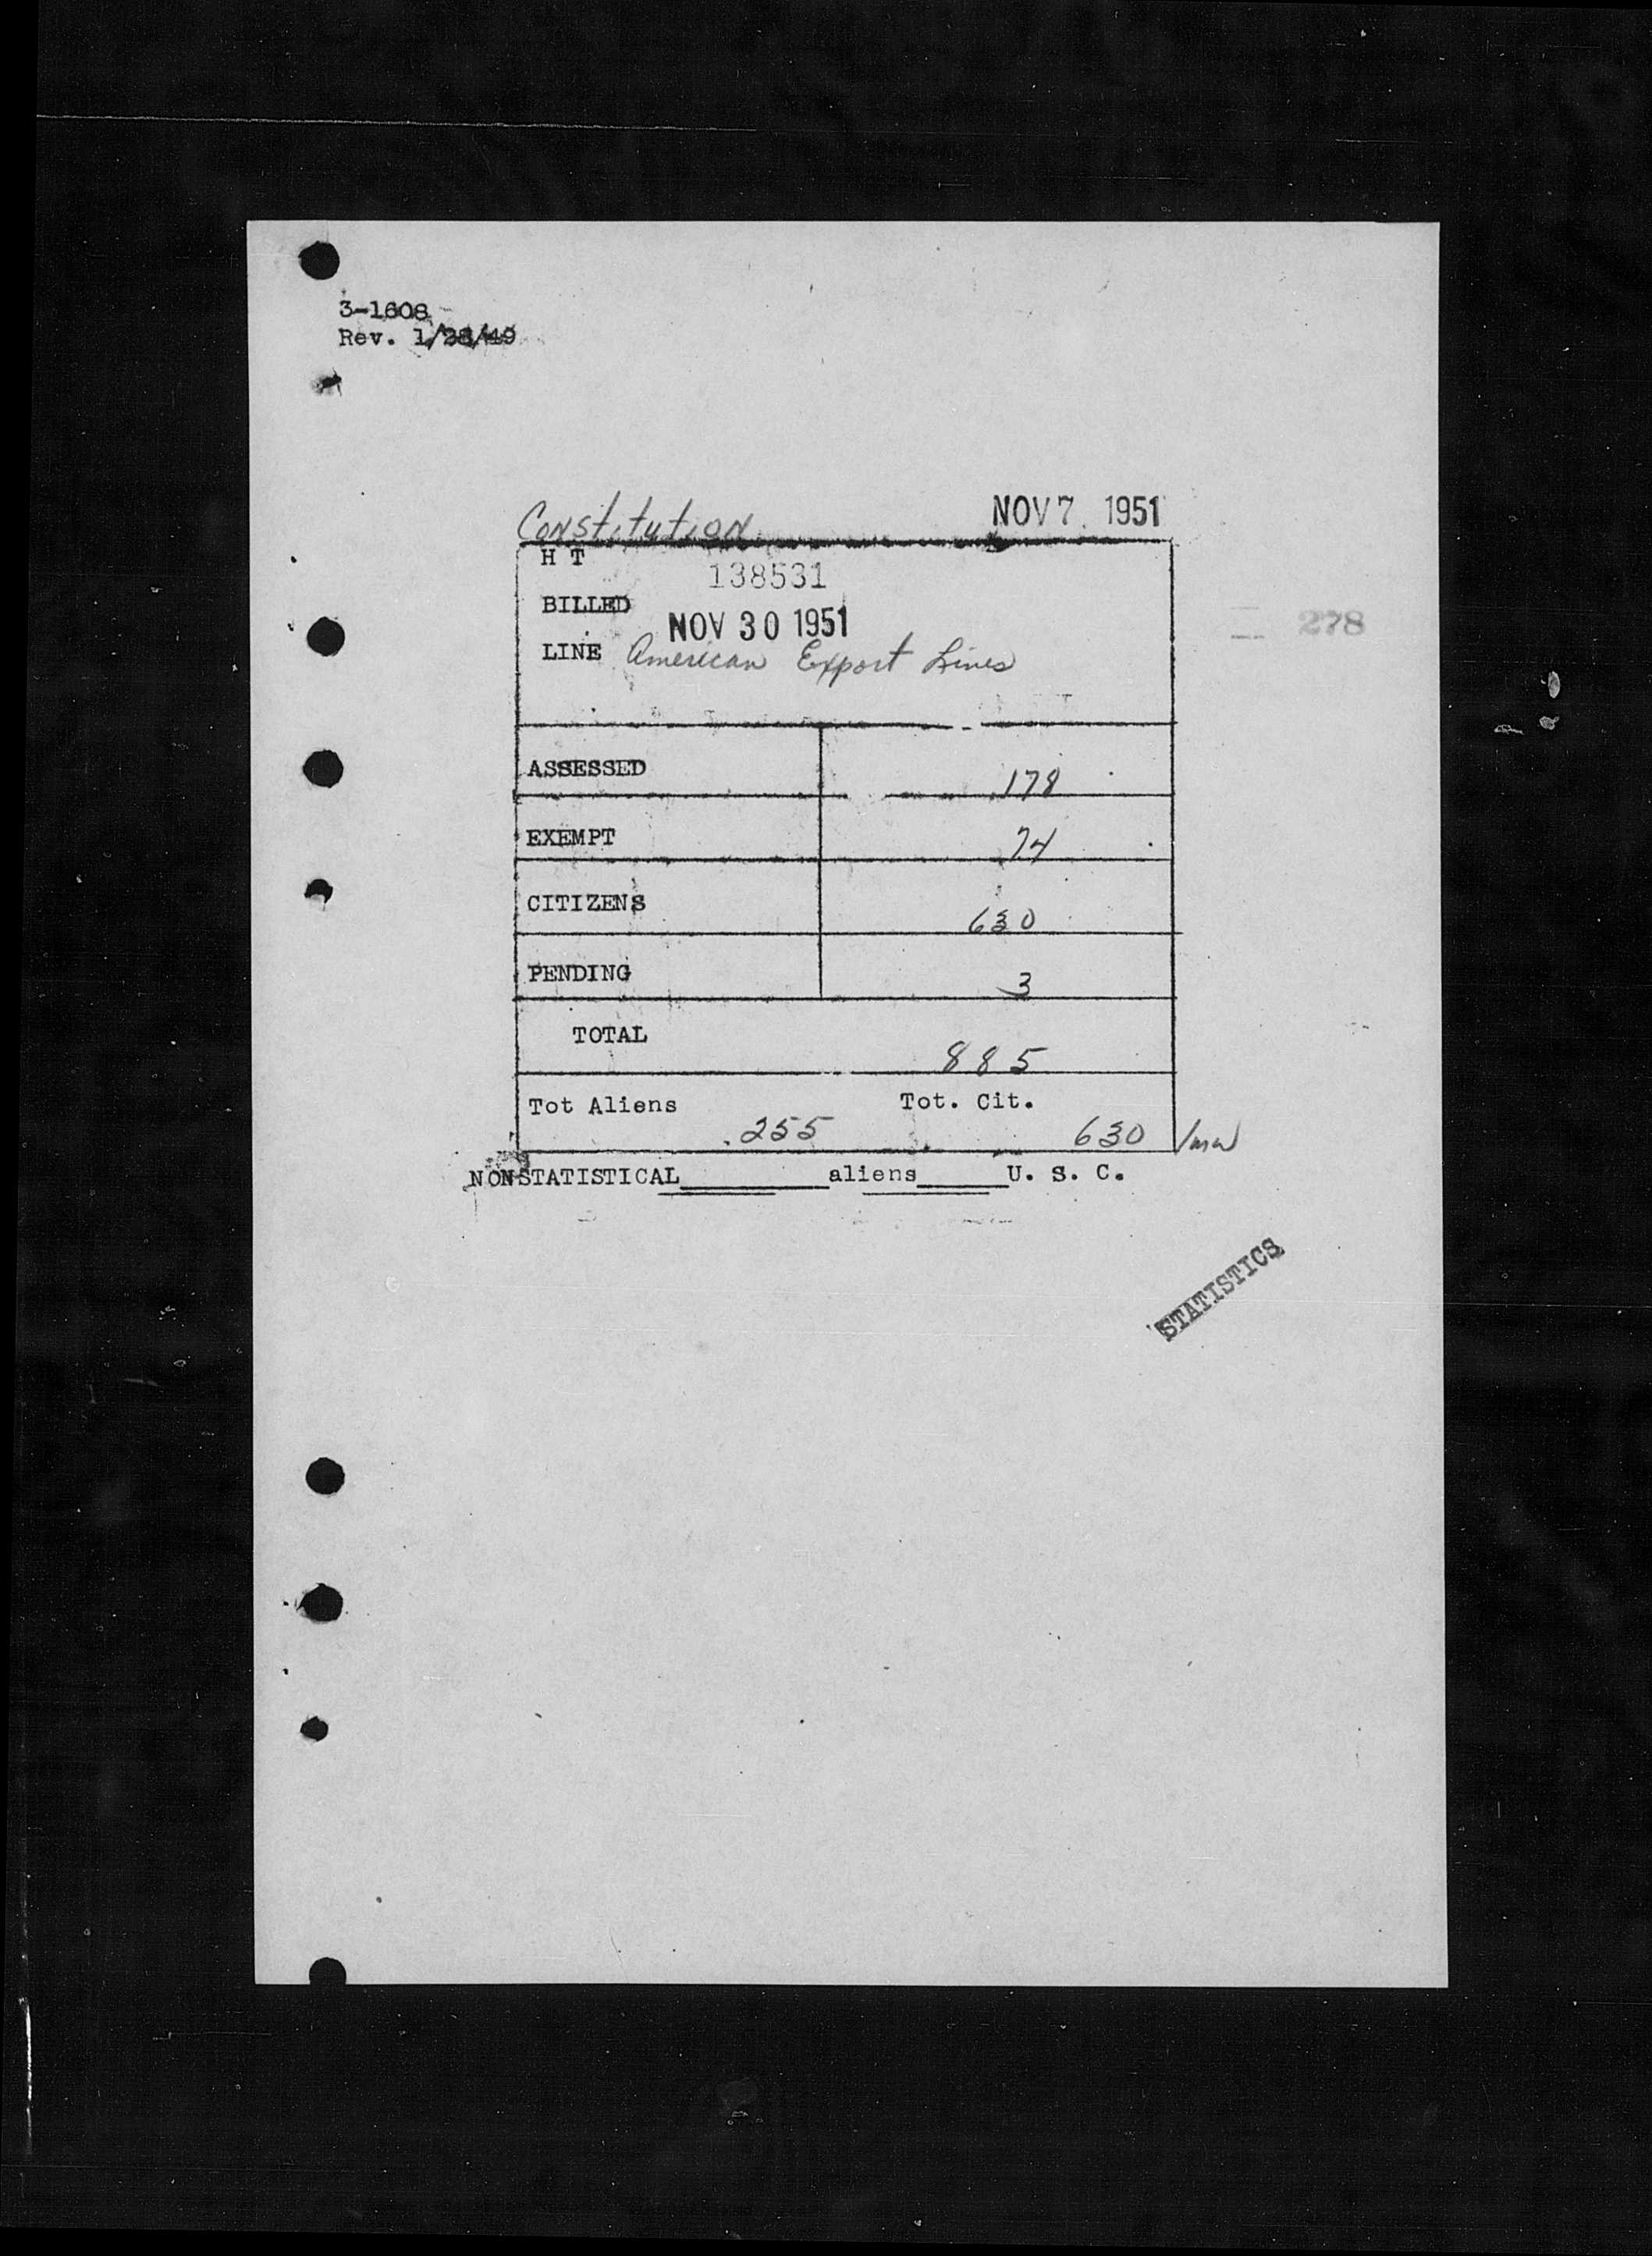 3-1608
Rev. 1/28/49
Constitution NOV 7 1951
H T
138531
BILLED
NOV 30 1951
LINE American Export Lines
278
ASSESSED 178
EXEMPT 74
CITIZENS 630
PENDING 3
TOTAL
885
Tot Aliens Tot. Cit.
255 630
NONSTATISTICAL aliens U. S. C.
STATISTICS